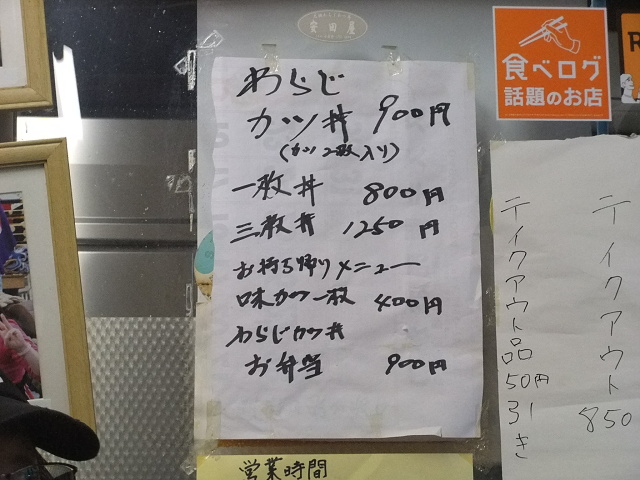 安田屋
わらじ
カツ丼 900円
(カツ2枚入り)
一枚丼 800円
三枚丼 1250円
お持ち帰りメニュー
味カツ一枚 400円
わらじカツ丼
お弁当 900円
営業時間
食べログ
話題のお店
テイクアウト 850
テイクアウト品50円引き
R